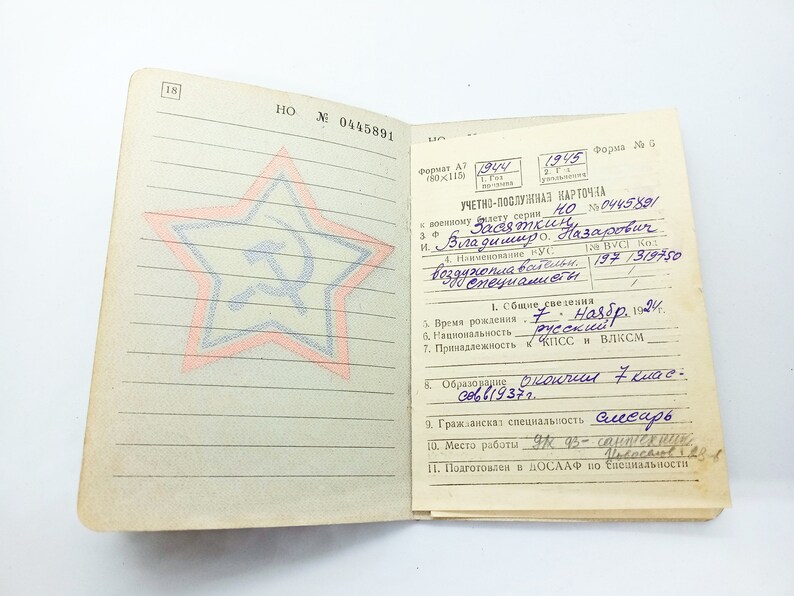 18
НО № 0445891
НО
Формат А7
(80×115)
1944
1. Год
призыва
1945
2. Год
увольнения
Форма № 6
УЧЕТНО-ПОСЛУЖНАЯ КАРТОЧКА
к военному билету серии НО № 0445891
3. Ф Засяткин
И. Владимир О. Назарович
4. Наименование ВУС № ВУС Код
воздухоплавательн. 197 1319750
специалисты
I. Общие сведения
5. Время рождения 7 ноябр. 1924 г.
6. Национальность русский
7. Принадлежность к КПСС и ВЛКСМ
8. Образование окончил 7 клас-
сов в 1937 г.
9. Гражданская специальность слесарь
10. Место работы сантехник
11. Подготовлен в ДОСААФ по специальности